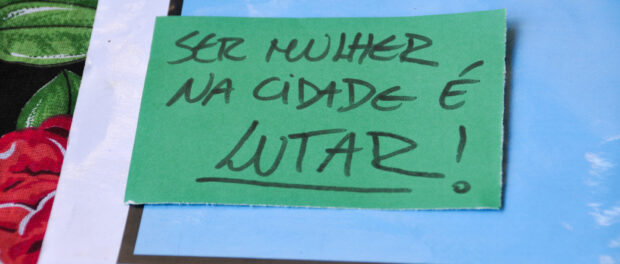 SER MULHER
NA CIDADE É
LUTAR!